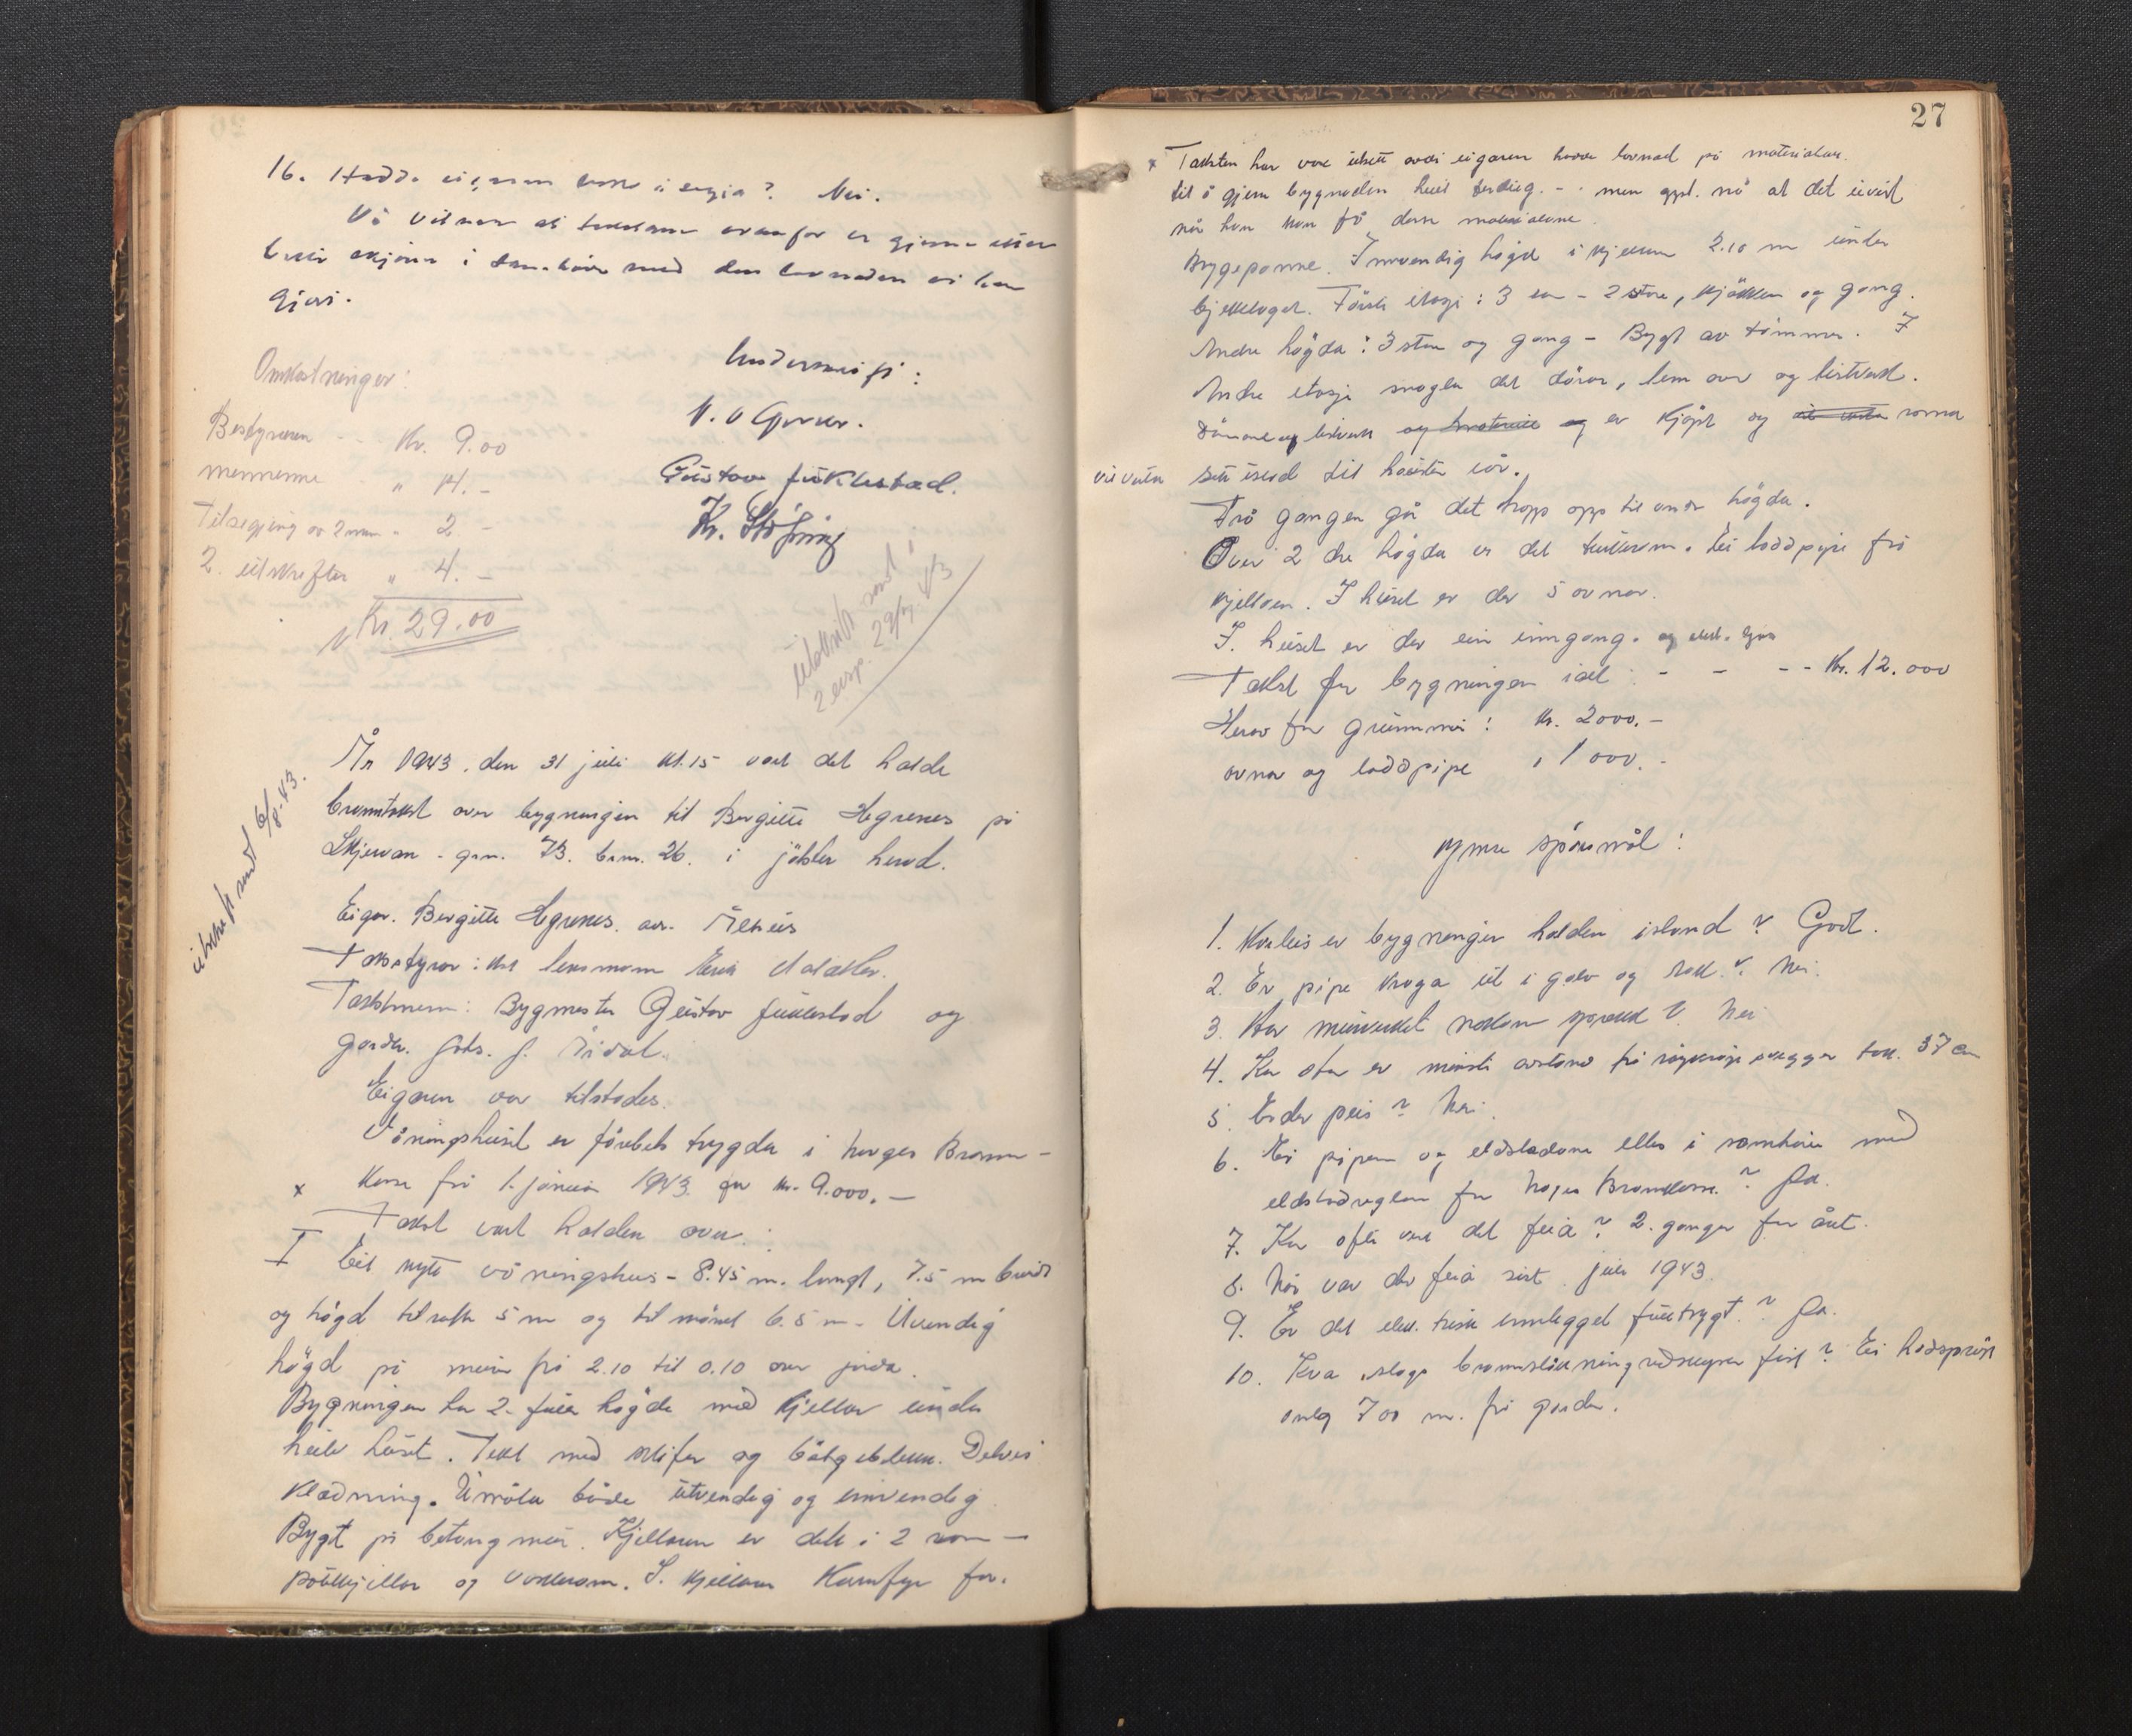 16. Hadde eigaren noko å segja? Nei.
Vi vitnar at taksten ovanfor er gjerne etter
beste skjøn i samhøve med den lovnaden vi har
gjevi.
Omkostninger:
Bestyreren Kr. 9.00
mennene " 14.-
Tilsegjing av 2 menn " 2 -
2. utskrifter " 4. -
Kr. 29.00
Underskrift:
Gustav Juklestad.
Kr. Støfring
Utskrift sendt
2 eksp. 29/7. 43
utskrift sendt 6/8-43.
År 1943, den 31 juli kl. 15 vart det halde
branntakst over bygningen til Bergitte Hegrenes på
Skjervan - gnr. 73. bnr. 26. i Jølster herad.
Eigar. Bergitte Hegrenes. adr. Ålhus
Takstmenn: Bygmester Gustav Juklestad og
gardbr. Johs. J. Årdal.
Eigaren var tilstades.
Våningshuset er førebels trygda i Norges Brann-
x kasse frå 1. januar 1943 for kr. 9.000.-
Takst vart halden over:
I Eit nytt våningshus - 8.45 m. langt, 7.5 m breidt
og høgd til raft 5 m og til mønet 6.5 m - Utvendig
høgd på mur frå 2.10 til 0.10 over jorda.
Bygningen har 2. fulle høgde med kjellar under
heile huset. Tekt med skifer og bølgeblekk. Delvis
klædning. Umåla både utvendig og innvendig
Bygt på betongmur. Kjellaren er delt i 2 rom -
potetkjellar og vaskerom. I kjellaren for.
27
x Taksten har vore utsett avdi eigaren havde lovnad på materialar
til å gjera bygnaden heilt ferdig. - men nå at det uvist
når han kan få desse materialene.
Bryggepanne. Innvendig høgd i kjellaren 2.10 m under
bjelkelaget. Første etasje: 3 rom - 2 stove, kjøkken og gang.
Andre høgda: 3 stove og gang - Bygt av tømmer. I
Andre etasje mangler det dører, lem over og listverk.
Dørane og listverk og er kjøpt og romma
vil verta sett istand til hausten iår.
Frå gangen går det tropp opp til andre høgda.
Over 2 dre høgda er det kullerom. Ei loddpipe frå
kjellaren. I huset er der 5 ovnar.
I. huset er der ein inngang. og elekt. ljos
Takst for bygningen ialt - - - - kr. 12.000
Herav for grunnmur: kr. 2000.-
ovnar og loddpipe " 1000.-
Ymse spørsmål:
1. Korleis er bygninger halden istand? Godt.
2. Er pipe kraga ut i golv og tak? Nei.
3. Har murverket nokon sprekk? Nei
4. Kor stor er minste avstand frå røykrøyr vegger tak. 37 cm
5. Er der peis? Nei.
6. Er pipene og eldstadene elles i samhøve med
eldstadreglene for Norges Brannkasse? Ja.
7. Kor ofte vert det feia? 2. gonger for året.
8. Når var der feia sist. juli 1943.
9. Er det elektriske innlegget fulltrygt? Ja.
10. Kva slags brannsløkningsreidskaper fins? Ei handsprøyt
omlag 700 m. frå garden.